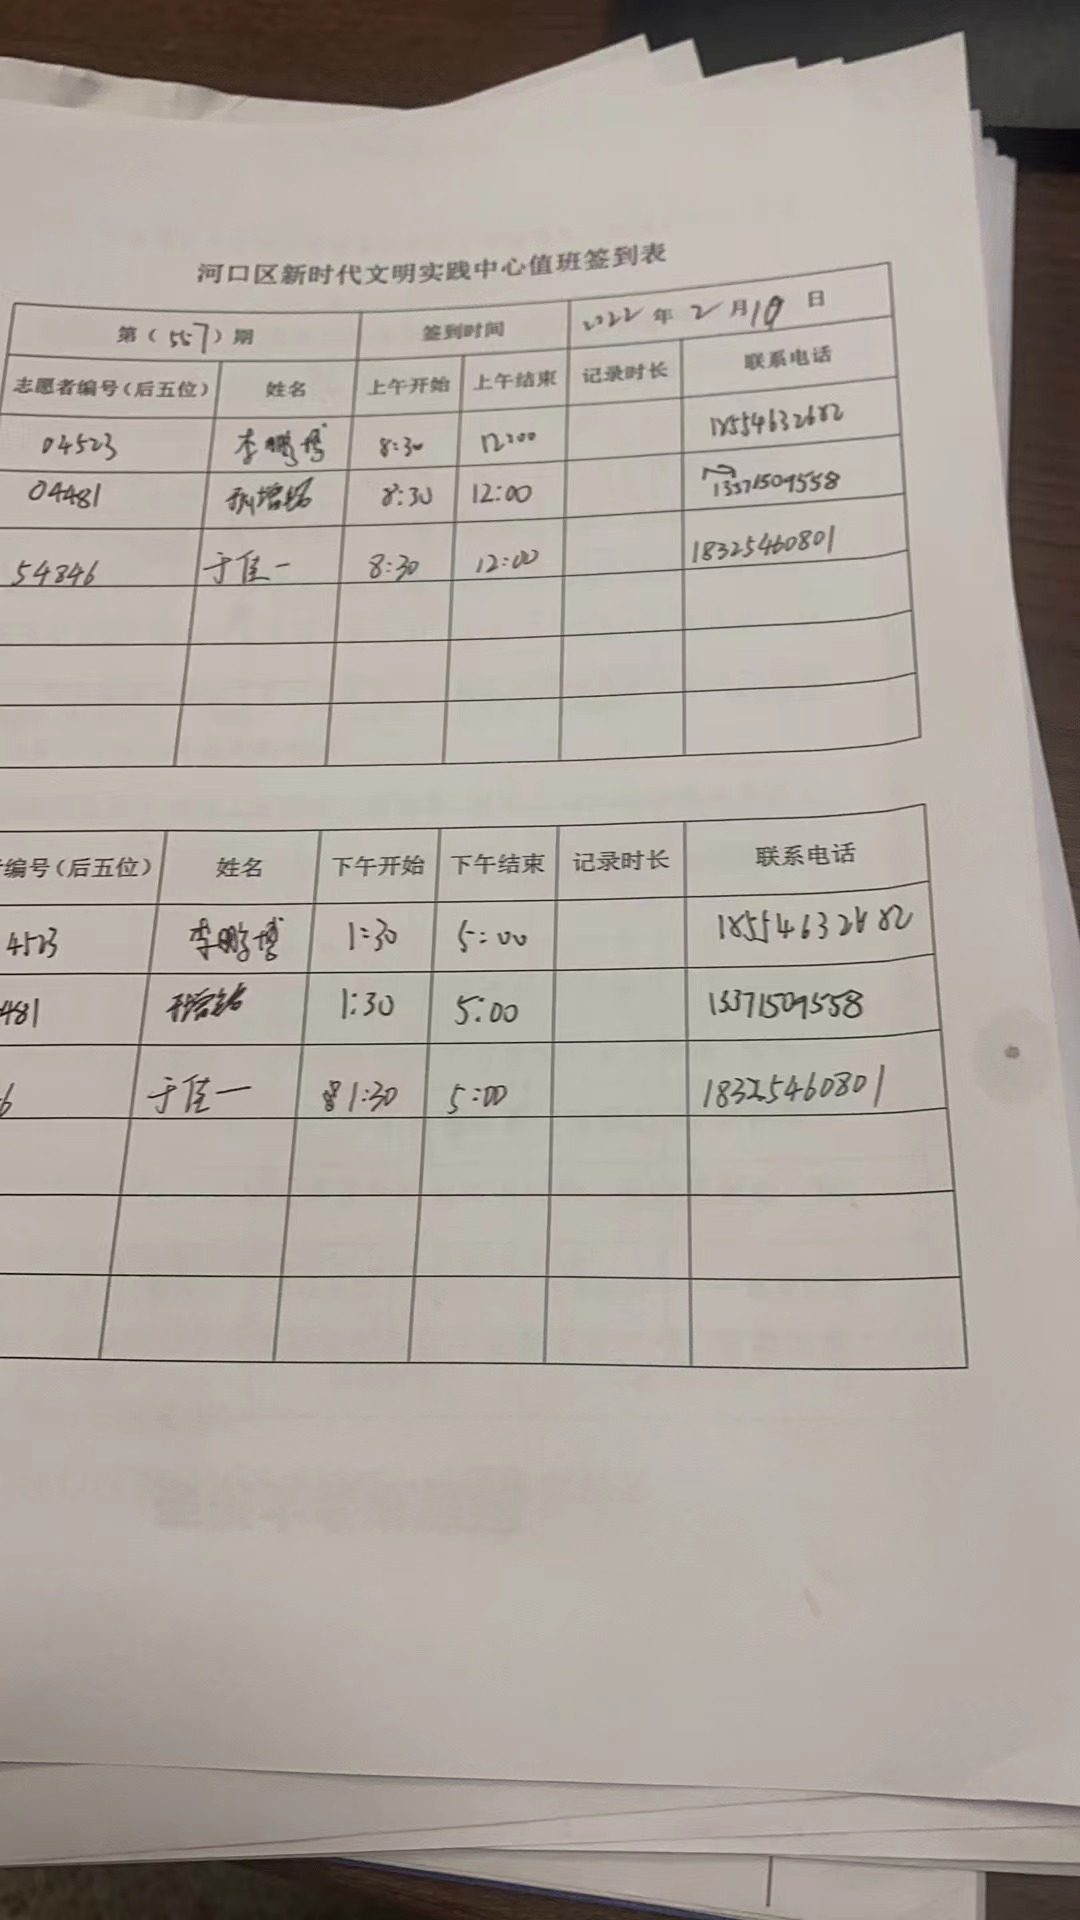 河口区新时代文明实践中心值班签到表
第（557）期 签到时间 2022年2月10日
志愿者编号（后五位） 姓名 上午开始 上午结束 记录时长 联系电话
04523 李鹏博 8:30 12:00 18554632682
04481 8:30 12:00 13371509558
54846 于佳一 8:30 12:00 18325460801
编号（后五位） 姓名 下午开始 下午结束 记录时长 联系电话
4523 李鹏博 1:30 5:00 18554632682
481 1:30 5:00 13371509558
6 于佳一 1:30 5:00 18325460801